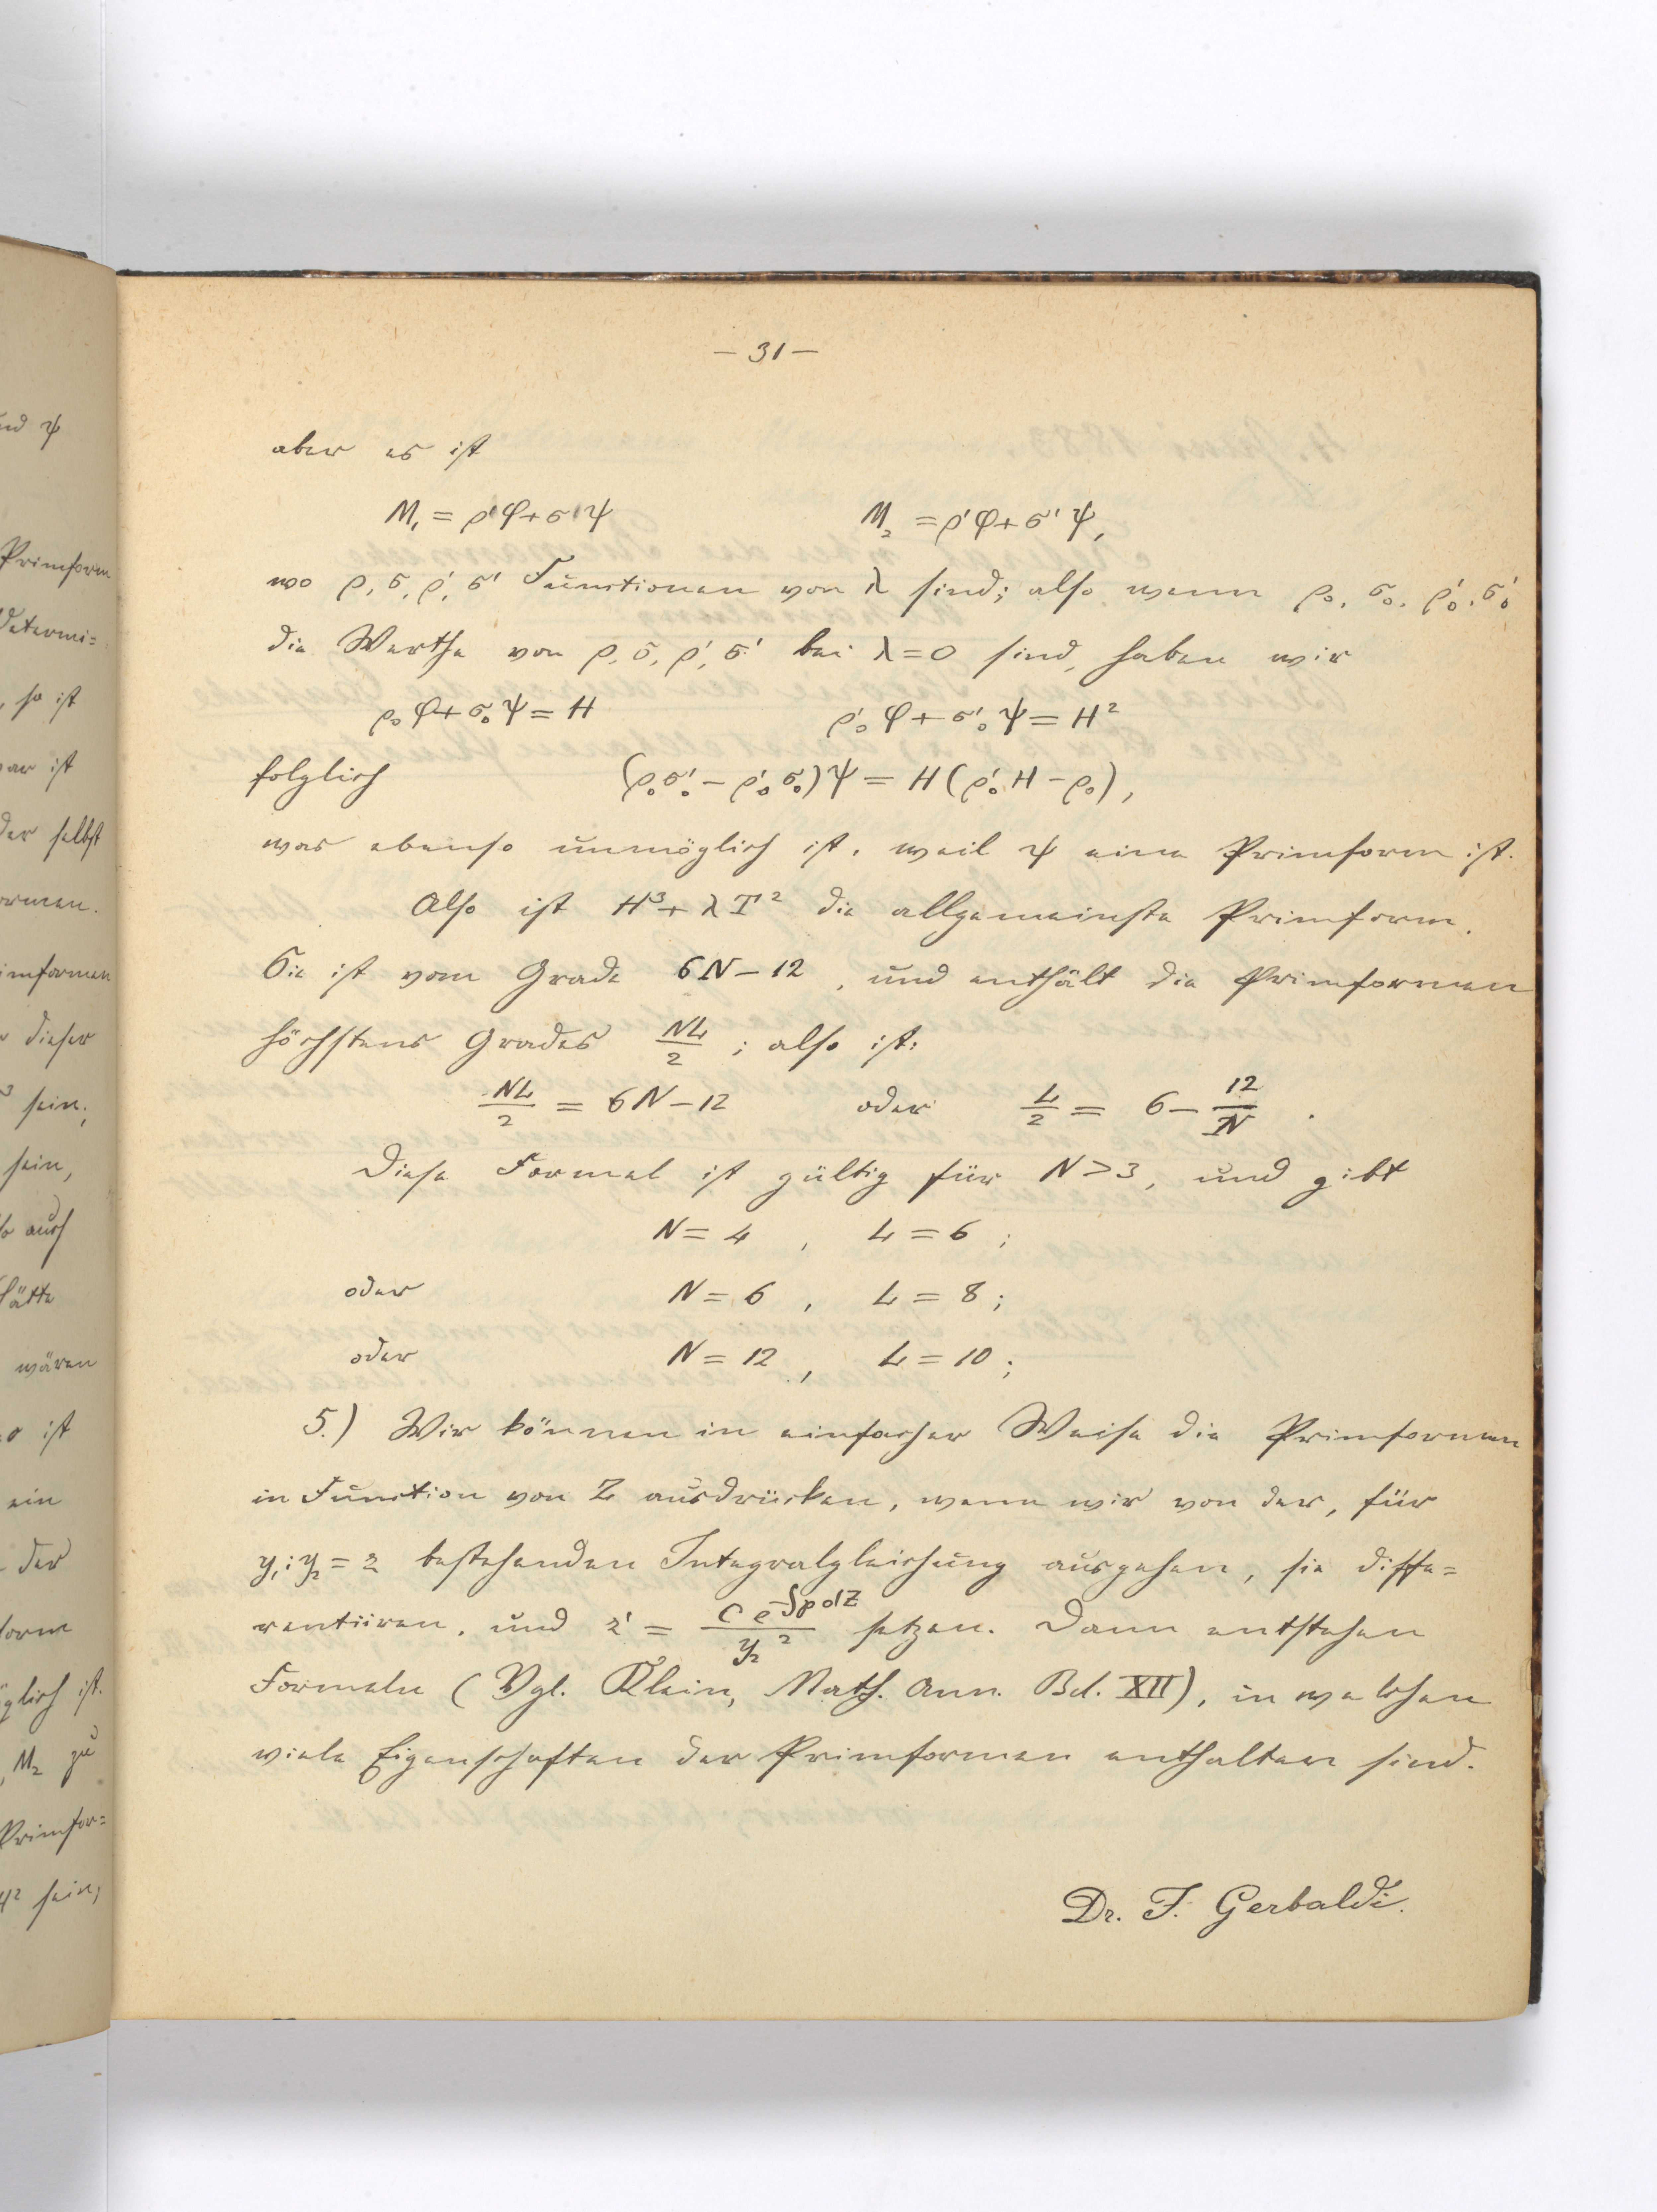 — 31 —
aber es ist
M₁ = ρφ + σψ M₂ = ρ'φ + σ'ψ,
wo ρ, σ, ρ', σ' Functionen von λ sind; also wenn ρ₀, σ₀, ρ'₀, σ'₀
die Werthe von ρ, σ, ρ', σ' bei λ = 0 sind, haben wir
ρ₀φ + σ₀ψ = H ρ'₀φ + σ'₀ψ = H²
folglich (ρ₀σ'₀ − ρ'₀σ₀)ψ = H(ρ'₀H − ρ₀),
was ebenso unmöglich ist, weil ψ eine Primform ist.
Also ist H³ + λT² die allgemeinste Primform.
Sie ist vom Grade 6N − 12, und enthält die Primformen
höchstens Grades NL/2; also ist:
NL/2 = 6N − 12 oder L/2 = 6 − 12/N.
Diese Formel ist gültig für N > 3, und gibt
N = 4, L = 6;
oder N = 6, L = 8;
oder N = 12, L = 10;
5.) Wir können in einfacher Weise die Primformen
in Function von Z ausdrücken, wenn wir von der, für
y₁ : y₂ = z bestehenden Integralgleichung ausgehen, sie diffe=
rentiiren, und z' = C e^(−∫p dZ)/y₂² setzen. Dann entstehen
Formeln (Vgl. Klein, Math. Ann. Bd. XII), in welchen
viele Eigenschaften der Primformen enthalten sind.
Dr. F. Gerbaldi.
und ψ
Primform
determi=
, so ist
ar ist
der selbst
ormen.
imformen
dieser
³ sein;
sein,
auch
hätte
wären
o ist
ein
der
form
öglich ist.
, M₂ zu
Primfor=
H² sein,